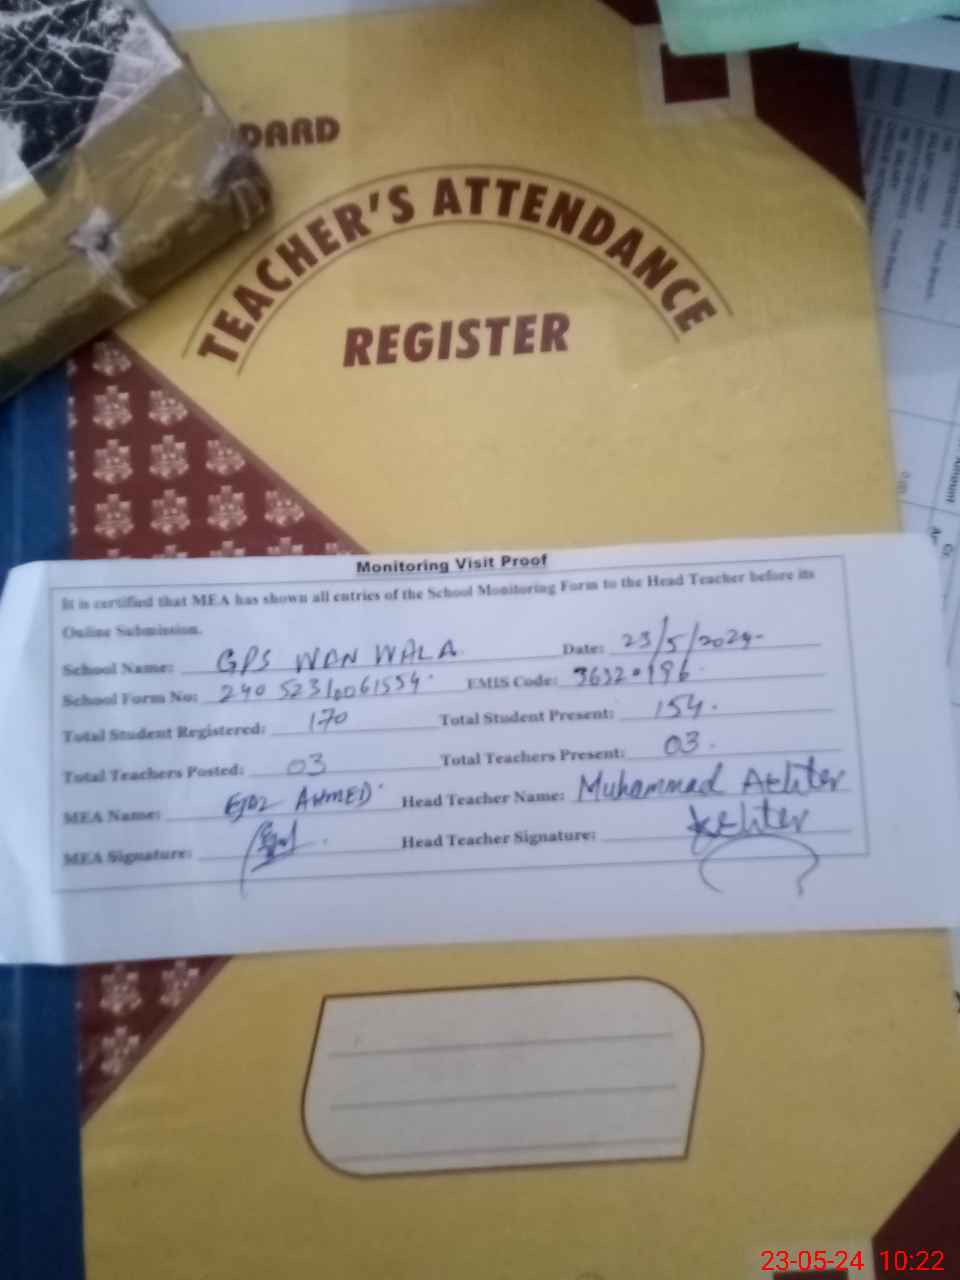 DARD
TEACHER'S ATTENDANCE
REGISTER
Monitoring Visit Proof
It is certified that MEA has shown all entries of the School Monitoring Form to the Head Teacher before its
Online Submission.
School Name: GPS WAN WALA Date: 23/5/2024
School Form No: EMIS Code: 36320196
Total Student Registered: 170 Total Student Present: 154
Total Teachers Posted: 03 Total Teachers Present: 03
MEA Name: EJAZ AHMED Head Teacher Name: Muhammad Akhter
MEA Signature: Head Teacher Signature: Akhter
23-05-24 10:22